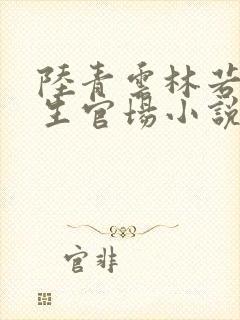 陸青雲林若
生官場小說
官非